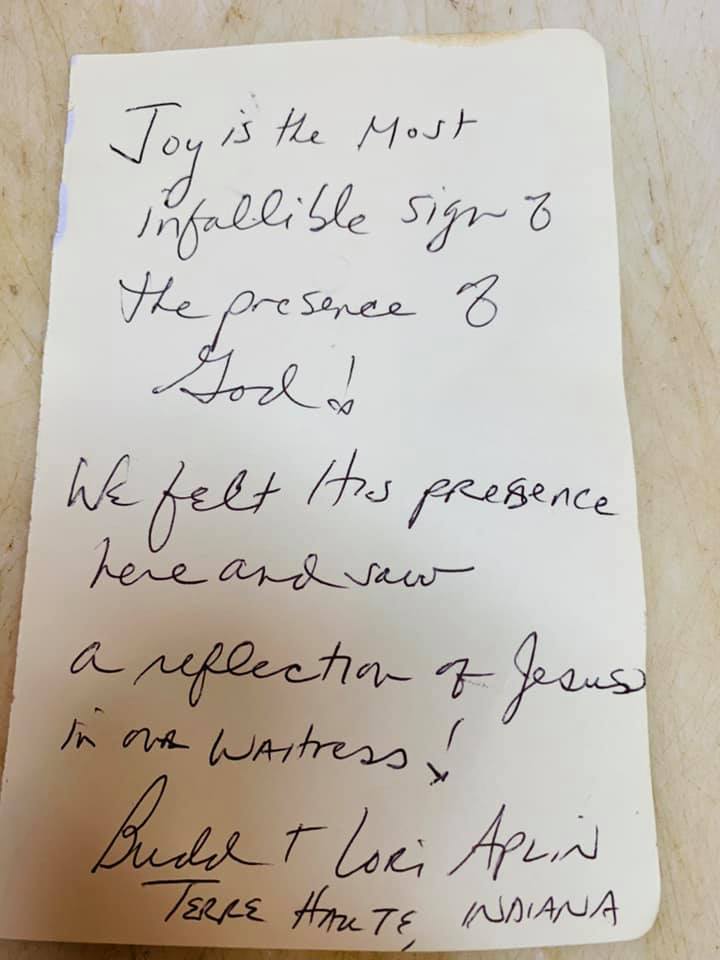 Joy is the Most
infallible sign of
the presence of
God!
We felt His presence
here and saw
a reflection of Jesus
in our Waitress!
Budd + Lori Aplin
Terre Haute, Indiana